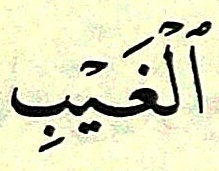 ٱلۡغَيۡبِ